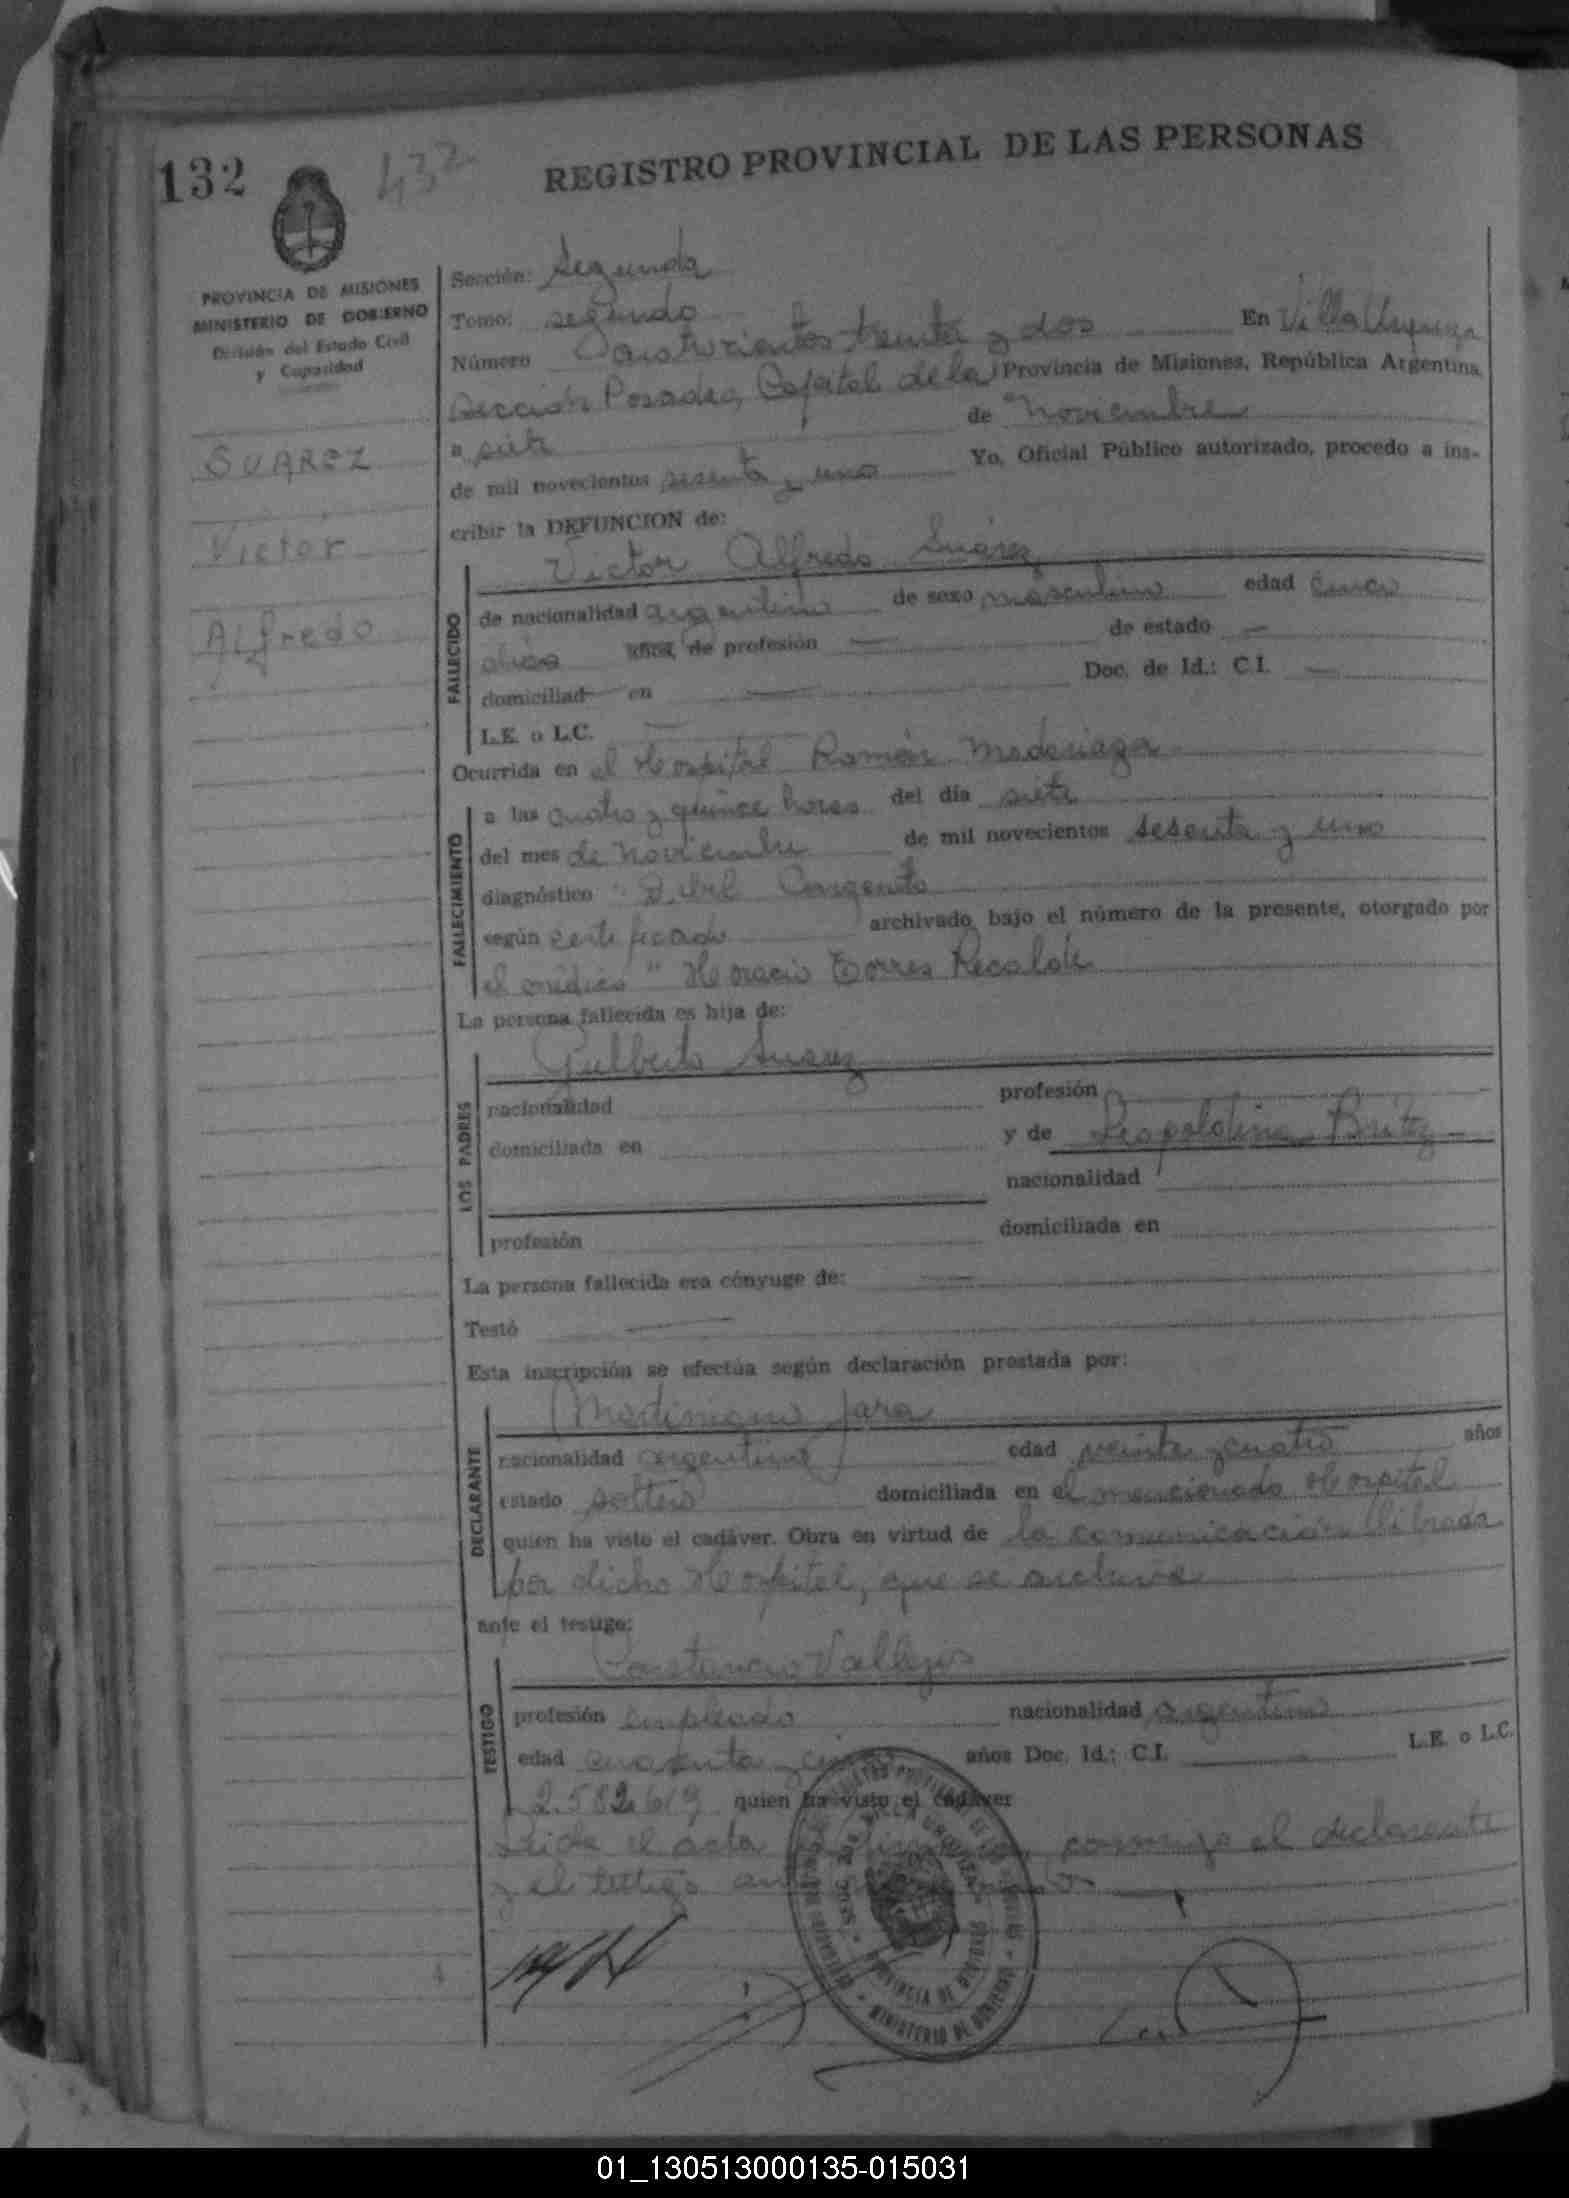 132
432
REGISTRO PROVINCIAL DE LAS PERSONAS
PROVINCIA DE MISIONES
MINISTERIO DE GOBIERNO
División del Estado Civil
y Capacidad
SUAREZ
Victor
ALfredo
Sección: Segunda
Tomo: segundo
Número Cuatrocientos treinta y dos En Villa Urquiza
Sección Posadas, Capital de la Provincia de Misiones, República Argentina,
a siete de Noviembre
de mil novecientos sesenta y uno Yo, Oficial Público autorizado, procedo a ins-
cribir la DEFUNCION de:
Victor Alfredo Suárez
FALLECIDO
de nacionalidad argentino de sexo masculino edad cinco
años, de profesión — de estado —
domiciliad— en — Doc. de Id.: C.I. —
L.E. o L.C. —
Ocurrida en el Hospital Ramón Madariaga
FALLECIMIENTO
a las cuatro y quince horas del día siete
del mes de noviembre de mil novecientos sesenta y uno
diagnóstico
según certificado archivado bajo el número de la presente, otorgado por
el médico " Horacio Torres Recalde
La persona fallecida es hija de:
LOS PADRES
Gilberto Suarez
nacionalidad profesión
domiciliada en y de Leopoldina Britez —
nacionalidad
profesión domiciliada en
La persona fallecida era cónyuge de: —
Testó —
Esta inscripción se efectúa según declaración prestada por:
DECLARANTE
Jara
nacionalidad argentina edad veinte y cuatro años
estado soltero domiciliada en el mencionado Hospital
quien ha visto el cadáver. Obra en virtud de la comunicación librada
por dicho Hospital, que se archiva
ante el testigo:
TESTIGO
Constancio Vallejos
profesión empleado nacionalidad argentino
edad cuarenta y cinco años Doc. Id.: C.I. L.E. o L.C.
2.582.619 quien ha visto el cadáver
Leida el acta conmigo el declarante
y el testigo
VILLA URQUIZA
PROVINCIA DE MISIONES
MINISTERIO DE GOBIERNO
01_130513000135-015031